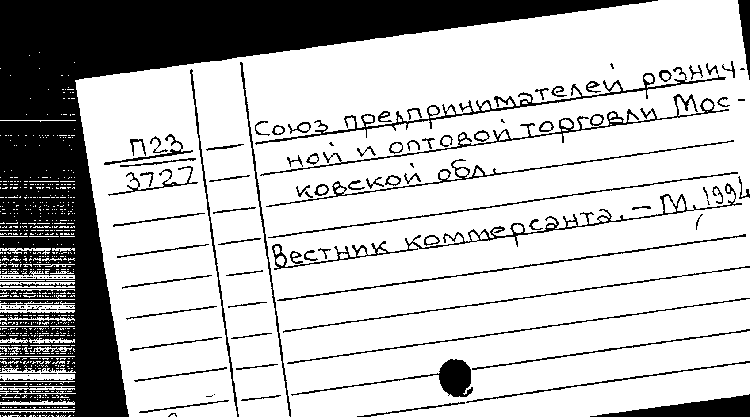 П23
3727
Союз предпринимателей рознич-
ной и оптовой торговли Мос-
ковской обл.
Вестник коммерсанта. – М. 1994